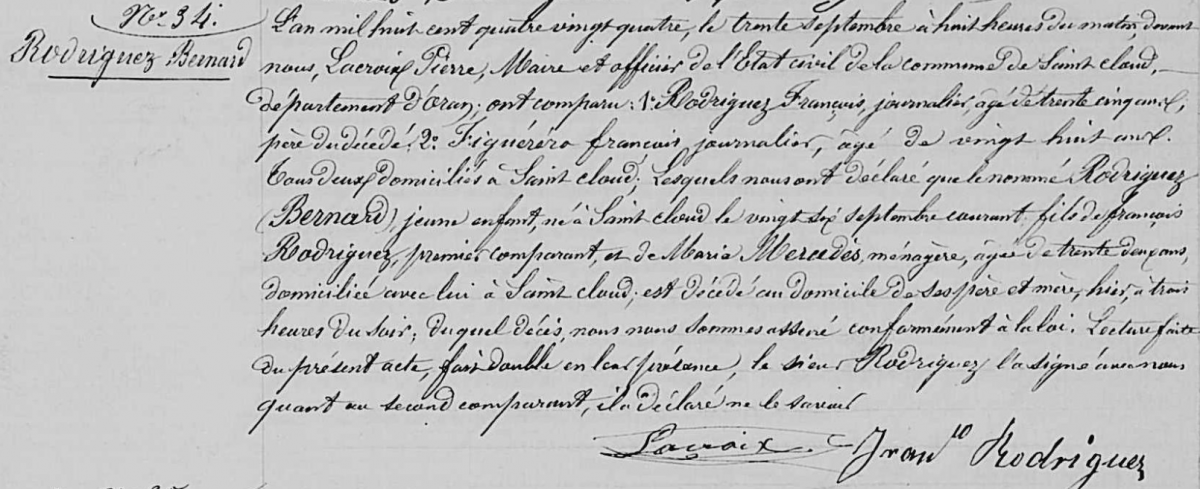 No. 34.
Rodriguez Bernard
L'an mil huit cent quatre vingt quatre, le trente septembre à huit heures du matin devant
nous, Lacroix Pierre, Maire et officier de l'Etat civil de la commune de Saint cloud,
département d'Oran; ont comparu: 1º Rodriguez François, journalier, âgé de trente cinq ans,
père du décédé. 2º Figuéréro françois, journalier, âgé de vingt huit ans.
Tous deux domiciliés à Saint cloud; Lesquels nous ont déclaré que le nommé Rodriguez
(Bernard) jeune enfant, né à Saint cloud le vingt six septembre courant fils de françois
Rodriguez, premier comparant, et de Maria Mercedès, ménagère, âgée de trente deux ans,
domiciliée avec lui à Saint cloud; est décédé au domicile de ses père et mère, hier, à trois
heures du soir; duquel décès, nous nous sommes assuré conformément à la loi. Lecture faite
du présent acte, fait double en leur présence, le sieur Rodriguez l'a signé avec nous
quant au second comparant, il a déclaré ne le savoir
Lacroix Fran^co Rodriguez